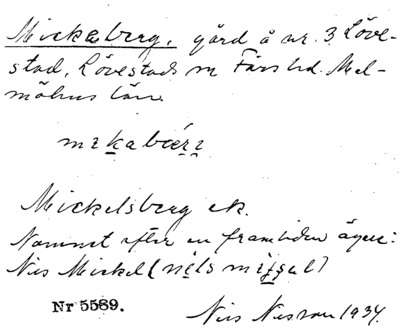 Mickaberg, gård å nr. 3 Löve-
stad, Lövestads sn Färs hd. Mal-
möhus län.
Mickelsberg ek.
Namnet efter en framliden ägare:
Nils Mickel (
Nr 5589.
Nils Nesson 1934.